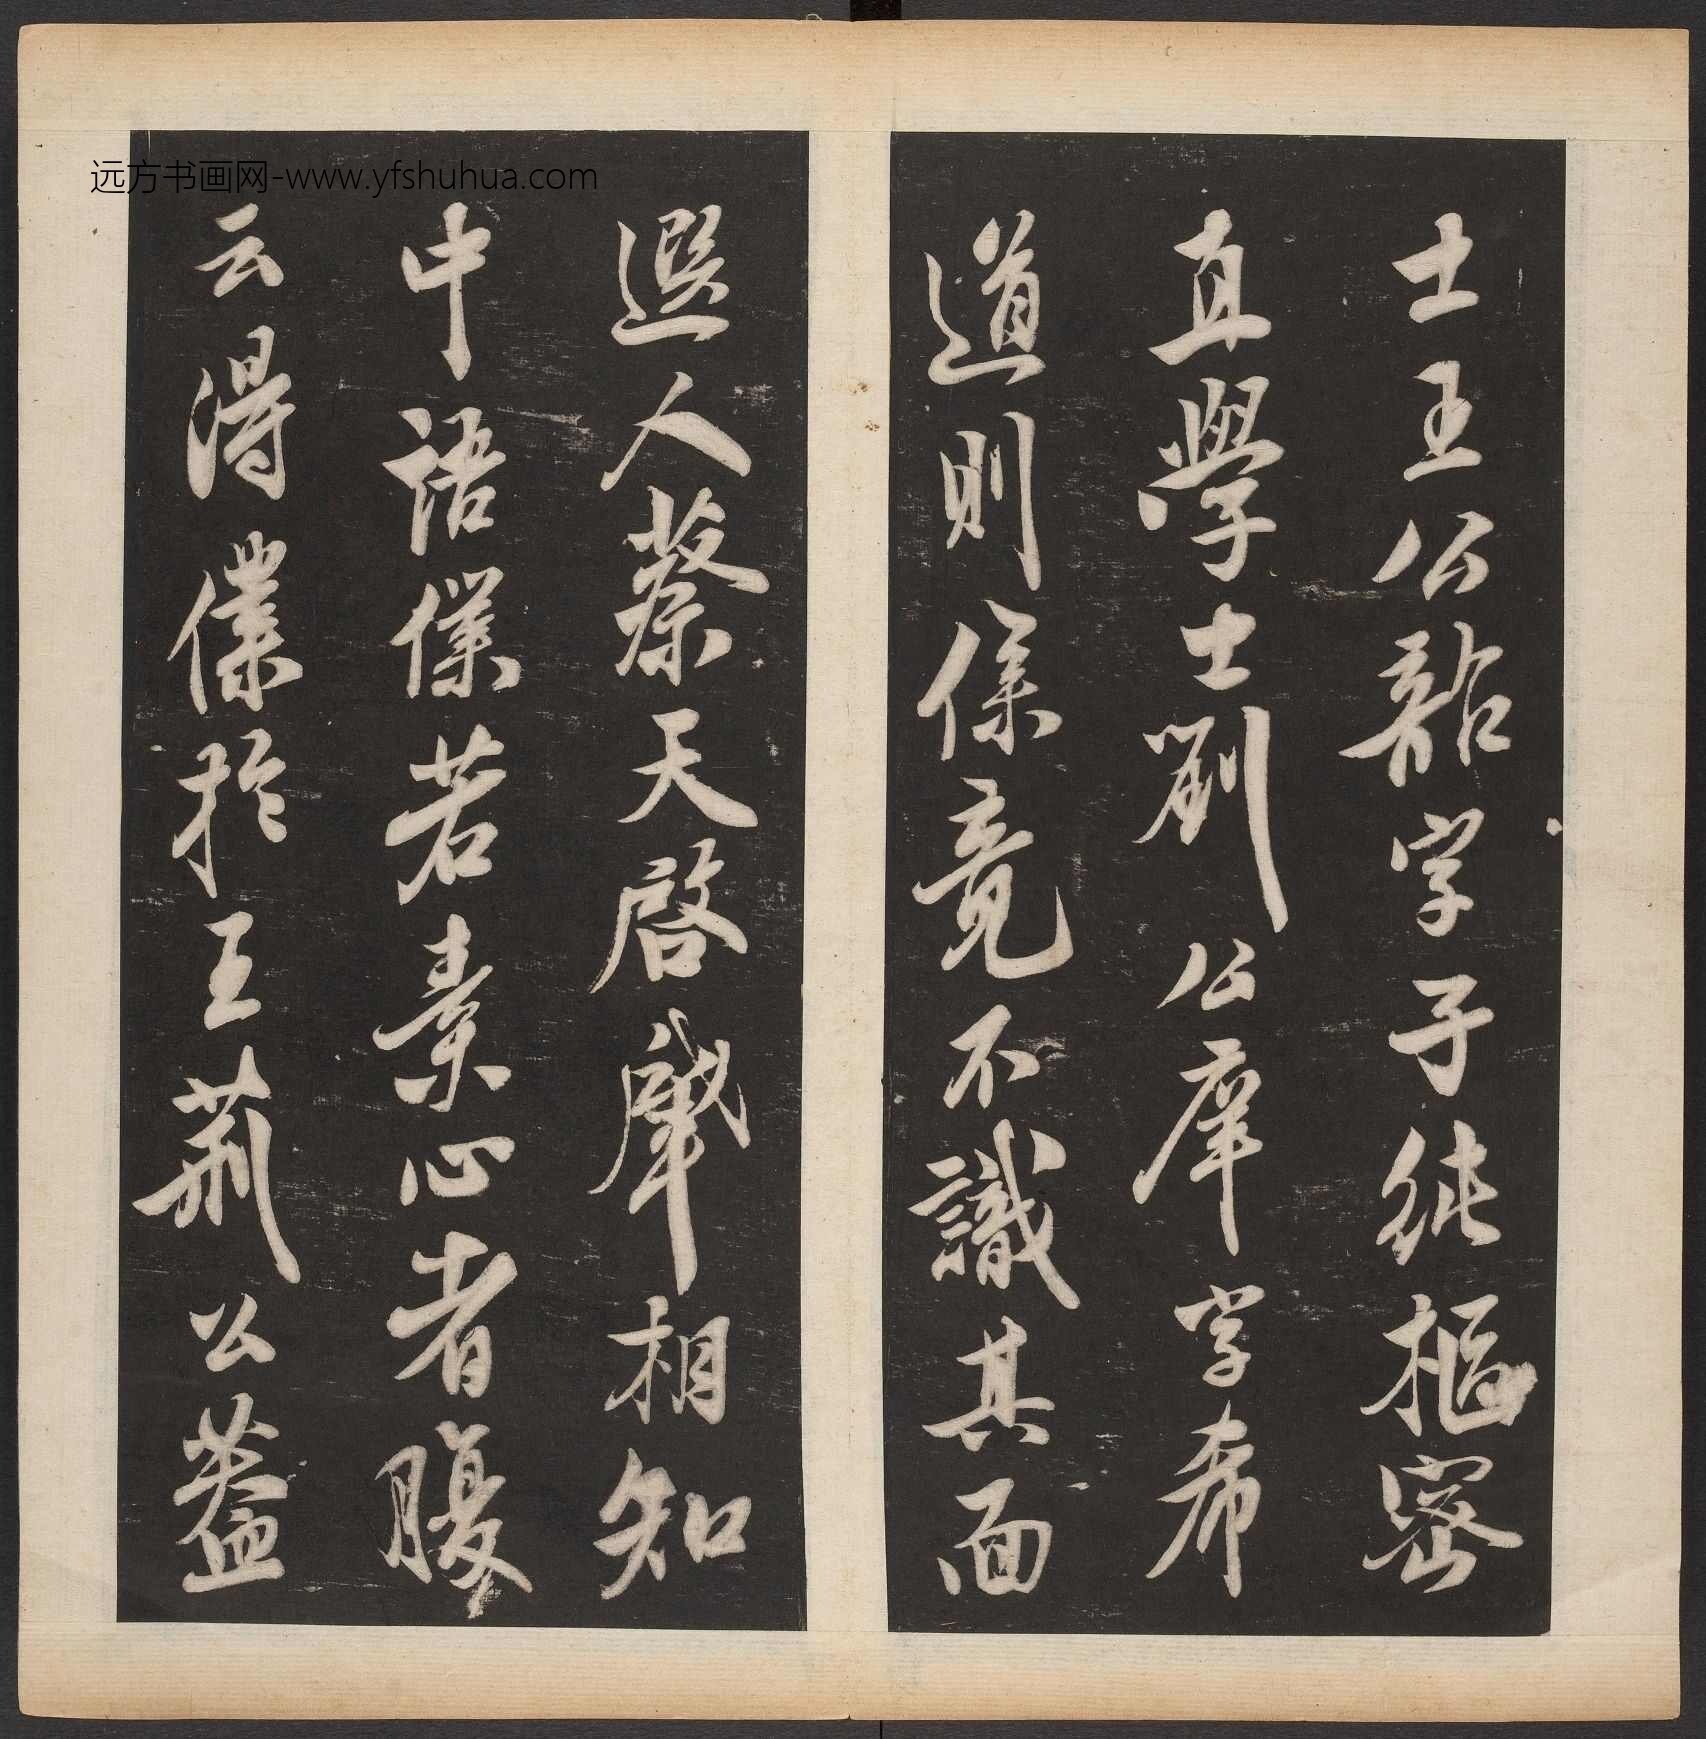 远方书画网-www.yfshuhua.com
士王公韶字子純樞密
直學士劉公庠字希
道則僕竟不識其面
遐人蔡天啓聲相知
中語僕若素心者腹
云得僕於王荊公蓋